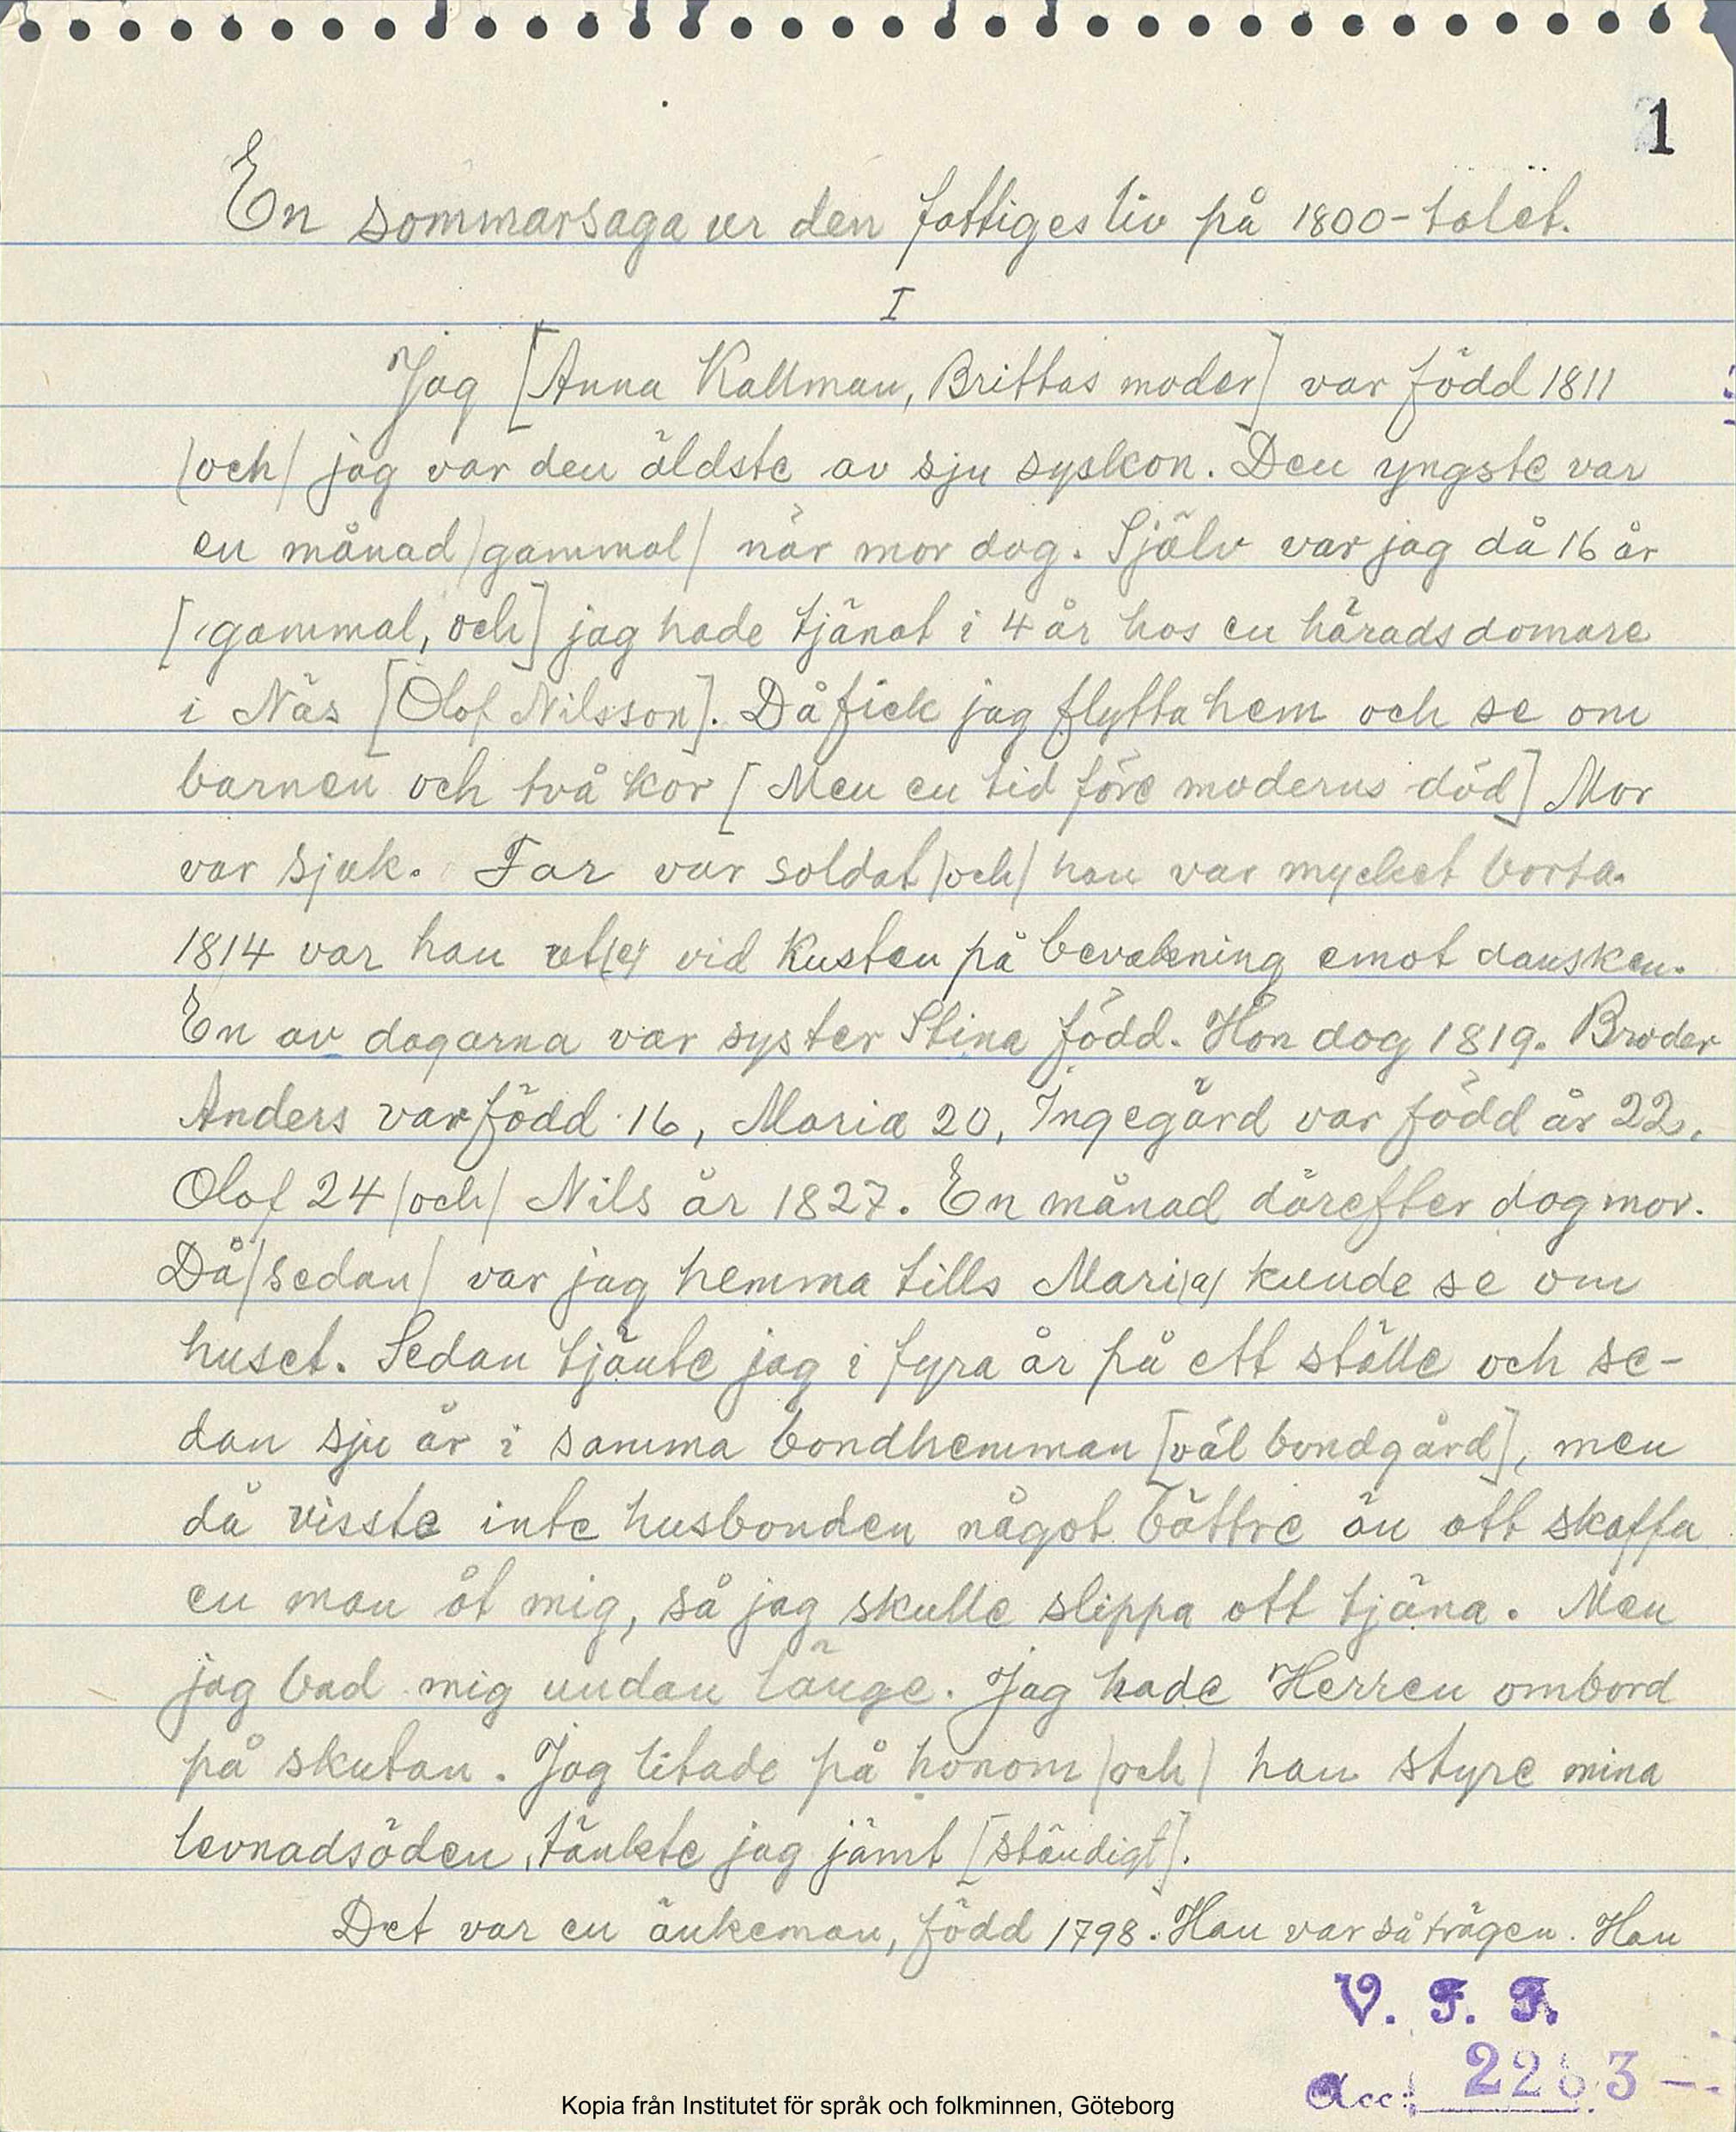 1
En sommarsaga ur den fattiges liv på 1800-talet.
I
Jag [Anna Kallman, Brittas moder] var född 1811
/och/ jag var den äldste av sju syskon. Den yngste var
en månad /gammal/ när mor dog. Själv var jag då 16 år
[gammal, och] jag hade tjänat i 4 år hos en häradsdomare
i Näs [Olof Nilsson]. Då fick jag flytta hem och se om
barnen och två kor [Men en tid före moderns död] Mor
var sjuk. Far var soldat /och/ han var mycket borta.
1814 var han ut/e/ vid kusten på bevakning emot dansken.
En av dagarna var syster Stina född. Hon dog 1819. Broder
Anders var född 16, Maria 20, Ingegärd var född år 22,
Olof 24 /och/ Nils år 1827. En månad därefter dog mor.
Då /sedan/ var jag hemma tills Mari/a/ kunde se om
huset. Sedan tjänte jag i fyra år på ett ställe och se-
dan sju år i samma bondhemman [väl bondgård], men
då visste inte husbonden något bättre än att skaffa
en man åt mig, så jag skulle slippa att tjäna. Men
jag bad mig undan länge. Jag hade Herren ombord
på skutan. Jag litade på honom /och/ han styre mina
levnadsöden, tänkte jag jämt [ständigt].
Det var en änkeman, född 1798. Han var så trägen. Han
V. F. F.
Acc: 2263
Kopia från Institutet för språk och folkminnen, Göteborg